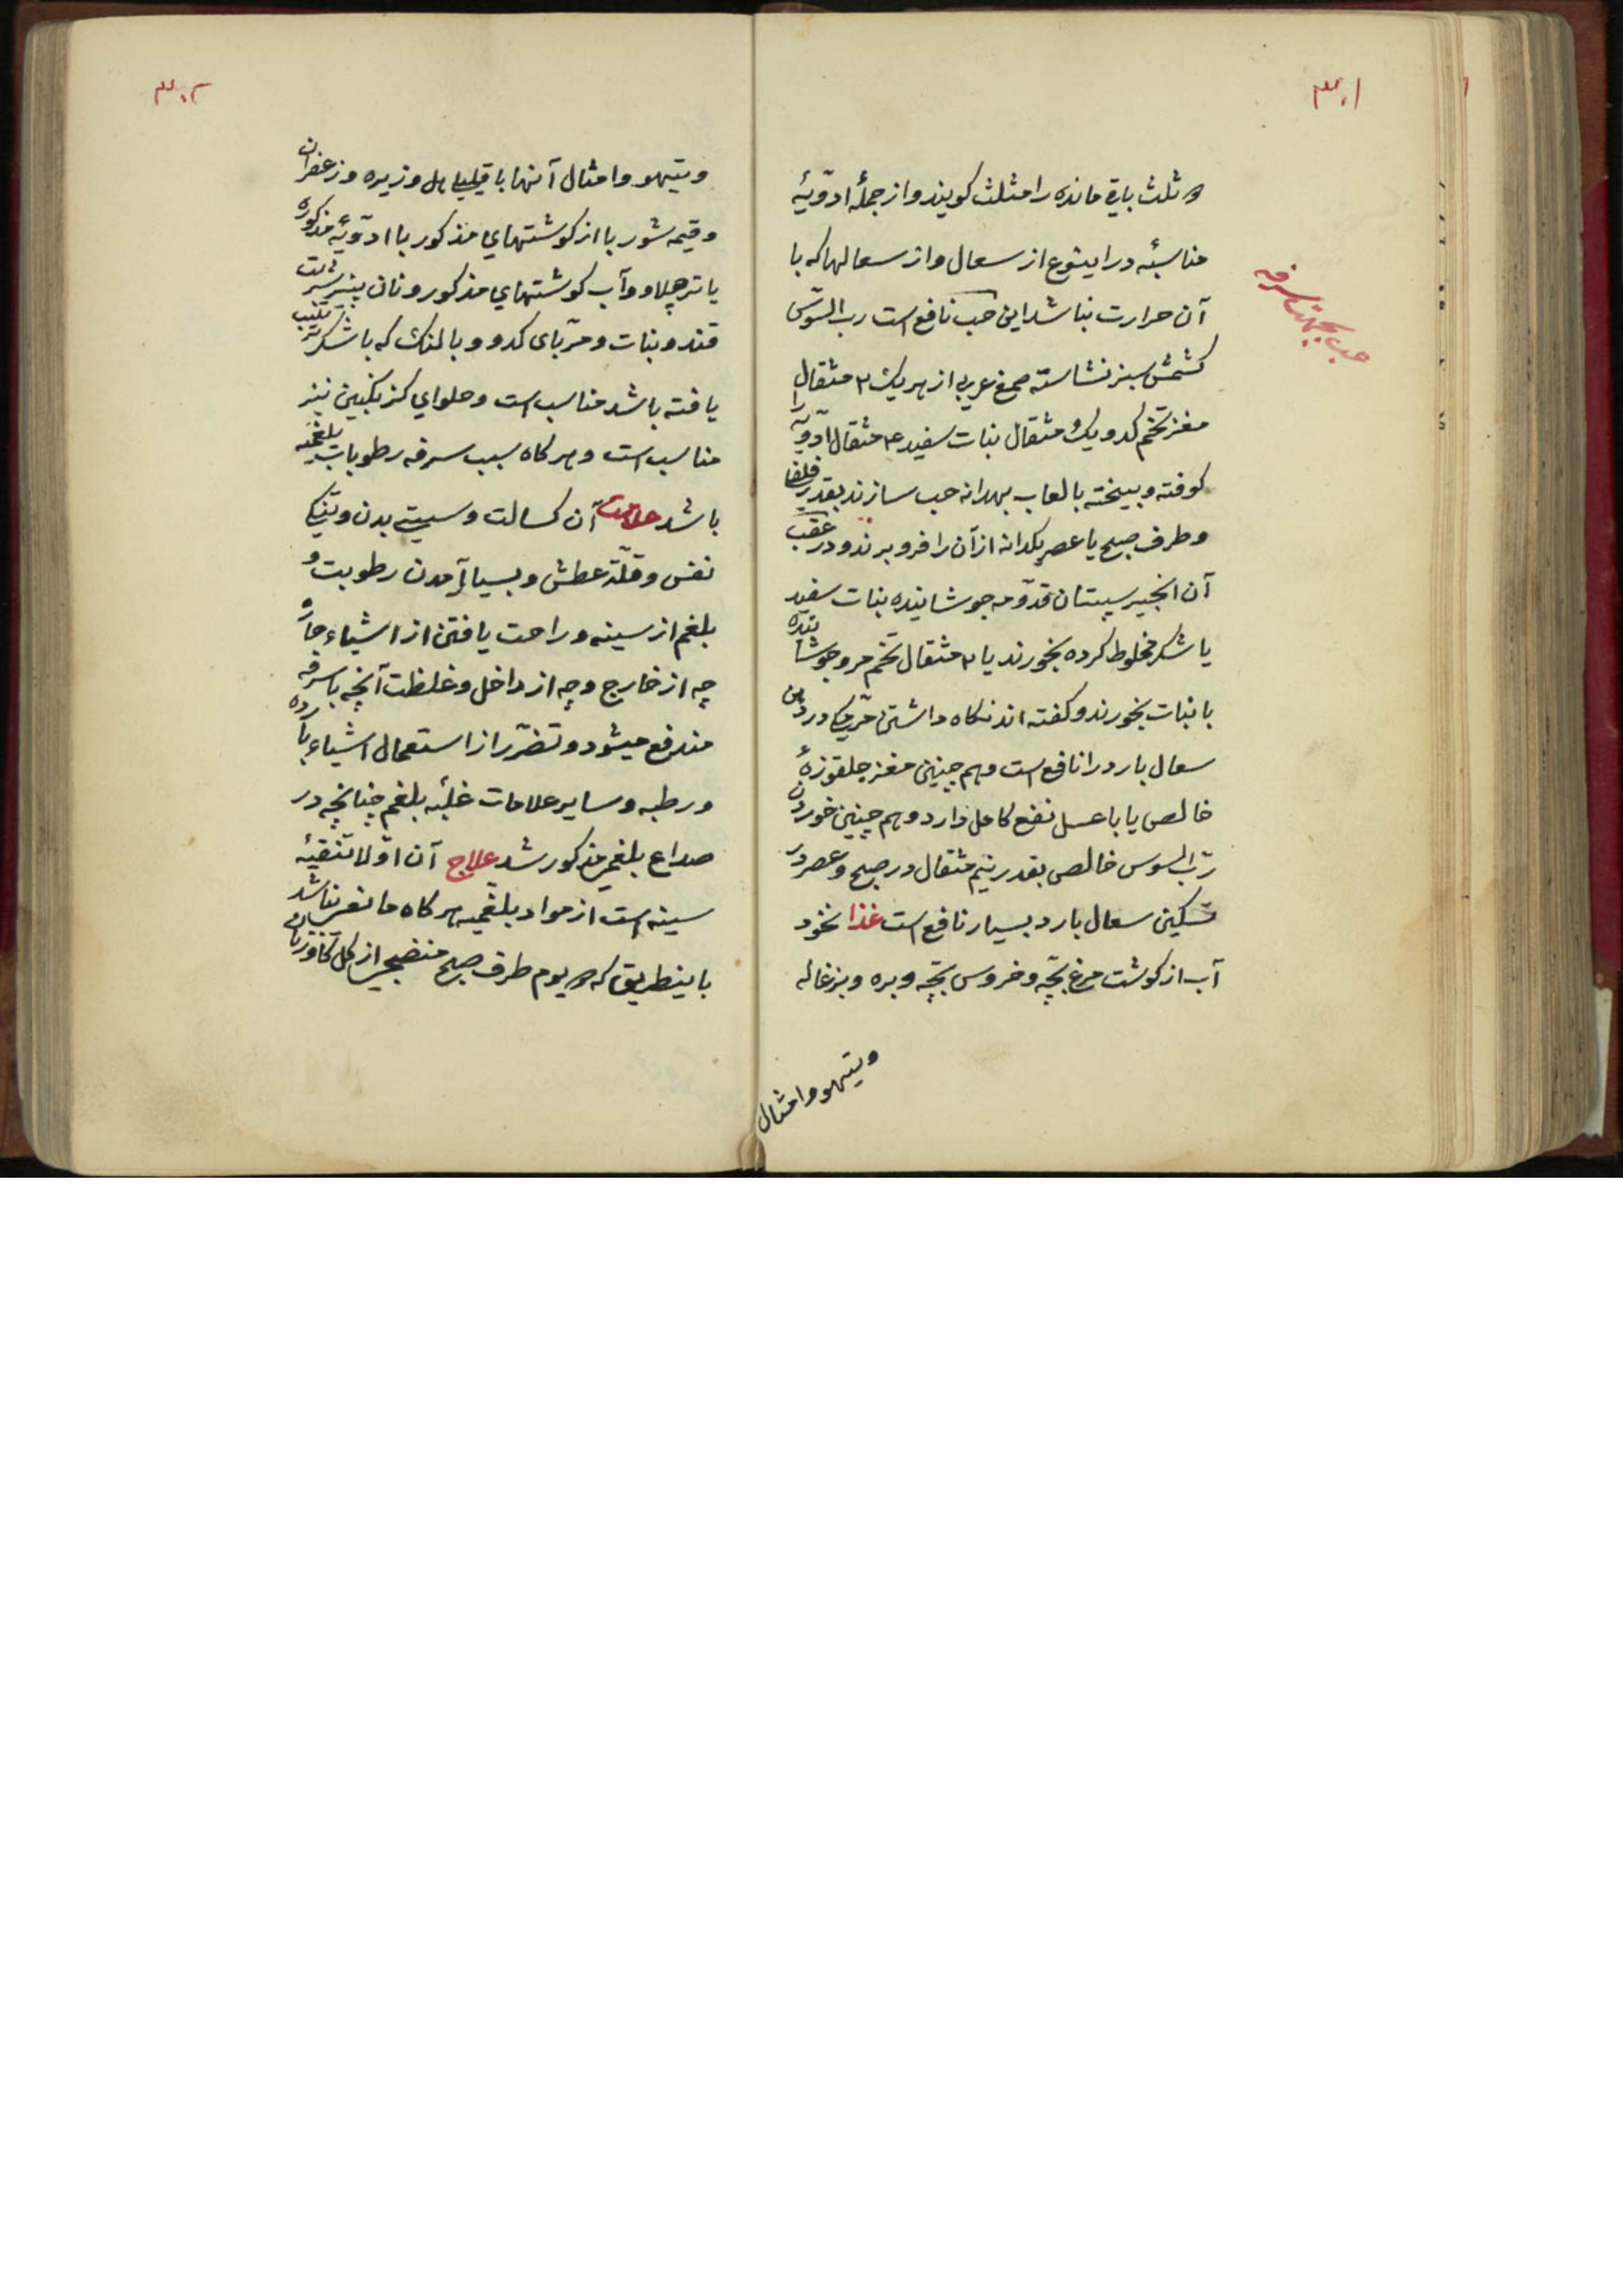 ۳۰۱
و ثلث باقی مانده را مثلث کویند و از جملهٔ ادویّهٔ
مناسبهٔ در اینوع از سعال و از سعالها که با
آن حرارت نباشد این حب نافع است رب السّوس
کشمش سبز نشاسته صمغ عربی از هریک ۲ مثقال
مغز تخم کدو یک مثقال نبات سفید ۴ مثقال ادویه را
کوفته و بیخته بالعاب بهدانه حب سازند بقدر فلفل
و طرف صبح یا عصر یکدانه از آن را فرو برند و در عقب
آن انجیر سپستان قدومه جوشانیده نبات سفید
یا شکر مخلوط کرده بخورند یا ۲ مثقال تخم مرو جوشانیده
با نبات بخورند و کفته اند نکاه داشتن در دهن
سعال بارد را نافع است و هم چنین مغز جلقوزهٔ
خالص یا باعسل نفع کامل دارد و هم چنین خوردن
ربّ السوس خالص بقدر نیم مثقال در صبح و عصر در
تسکین سعال بارد بسیار نافع است غذا نخود
آب از کوشت مرغ بچّه و خروس بچّه و بره و بزغاله
ویتهو و امثال
حب بجهت سرفه
۳۰۲
ویتهو و امثال آنها با قلیلی هل و زیره و زعفران
و قیمه شوربا از کوشتهای مذکور با ادویّهٔ مذکوره
یا تر چلاو و آب کوشتهای مذکور و نان پنیر شربت
قند و نبات و مربّای کدو و بالنک که با شکر ترتیب
یافته باشد مناسب است و حلوای کزنکبین نیز
مناسب است و هر کاه سبب سرفه رطوبات بلغمیه
باشد علامت آن کسالت و سستی بدن و تنکی
نفس و قلّة عطش و بسیار آمدن رطوبت و
بلغم از سینه و راحت یافتن از اشیاء حارّه
چه از خارج و چه از داخل و غلظت آنچه با سرفه
مندفع میشود و تضرّر از استعمال اشیاء بارده
و رطبه و سایر علامات غلبهٔ بلغم چنانچه در
صداع بلغمی مذکور شد علاج آن اوّلا تنقیهٔ
سینه است از مواد بلغمیه هر کاه مانعی نباشد
باینطریق که یوم طرف صبح منضجی از کل کاوزبان